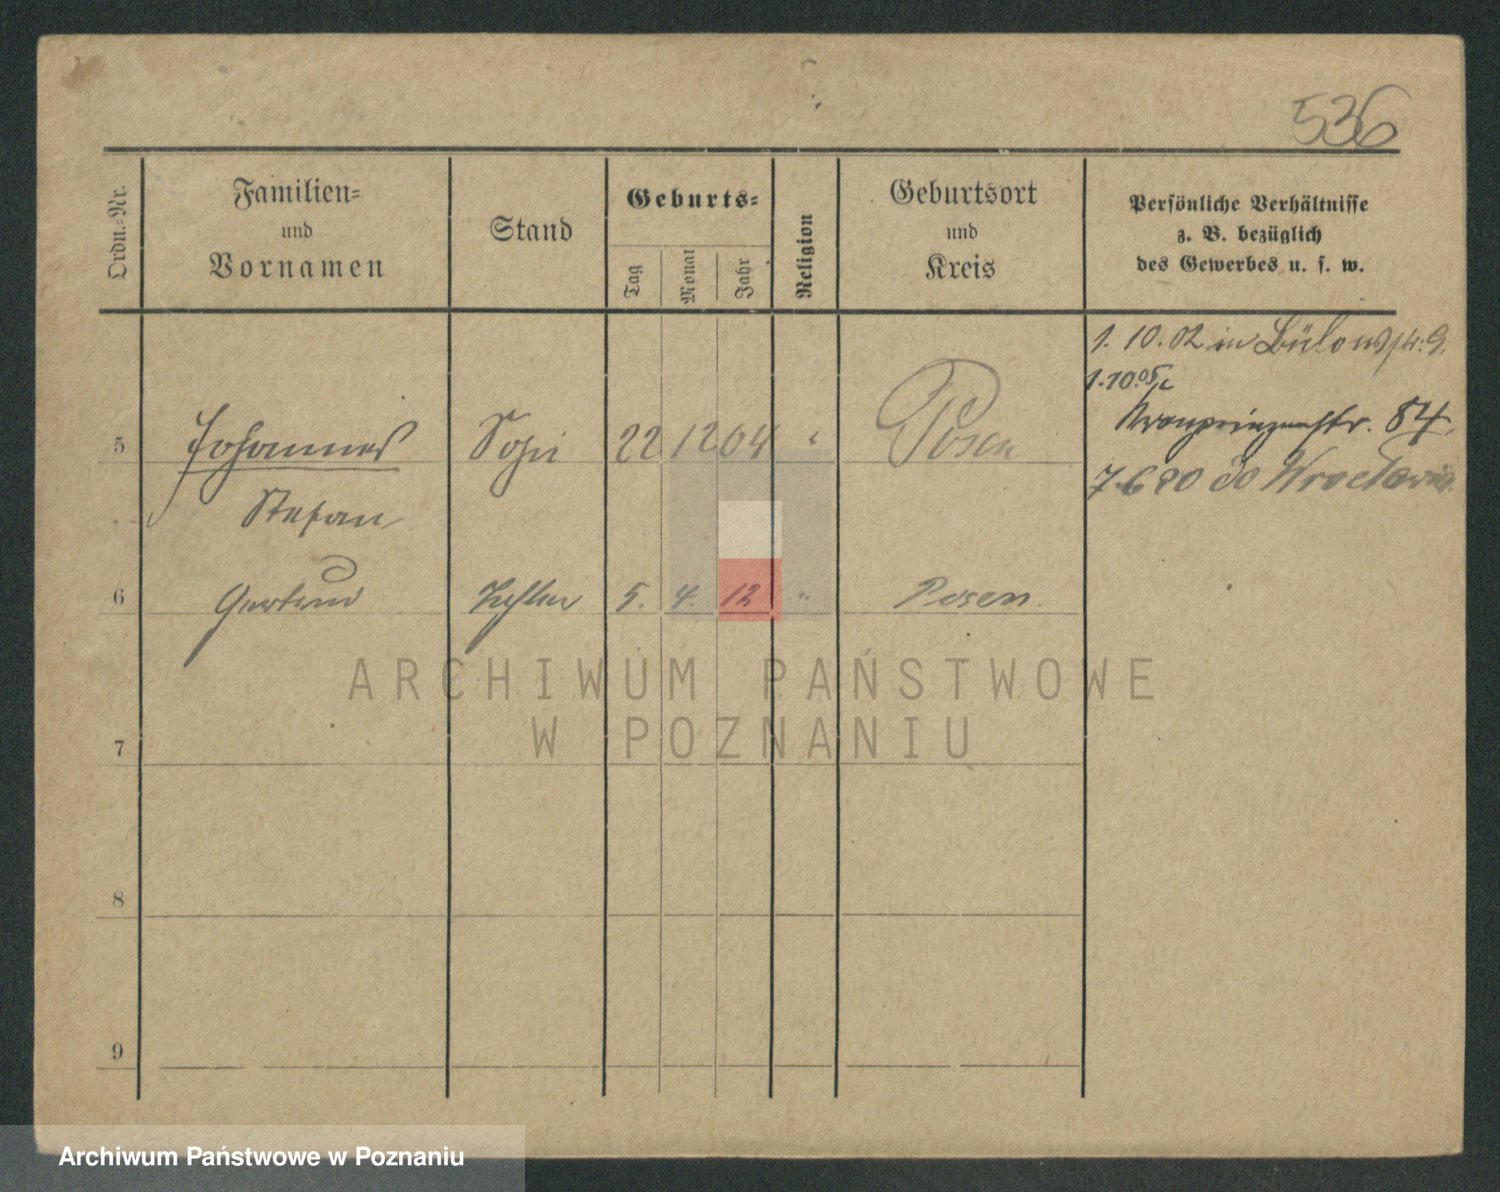 536
Ordn.-Nr.
Familien-
und
Vornamen
Stand
Geburts-
Tag
Monat
Jahr
Religion
Geburtsort
und
Kreis
Persönliche Verhältnisse
z. B. bezüglich
des Gewerbes u. s. w.
1. 10. 02 in Bülowstr. 9.
1.10.05
Kronprinzenstr. 84.
7 6 20 do Wrocławia.
5 Johannes Sohn 22 12 04 " Posen
Stefan
6 Gertrud Tochter 5. 4. 12 " Posen.
7
8
9
ARCHIWUM PAŃSTWOWE
W POZNANIU
Archiwum Państwowe w Poznaniu